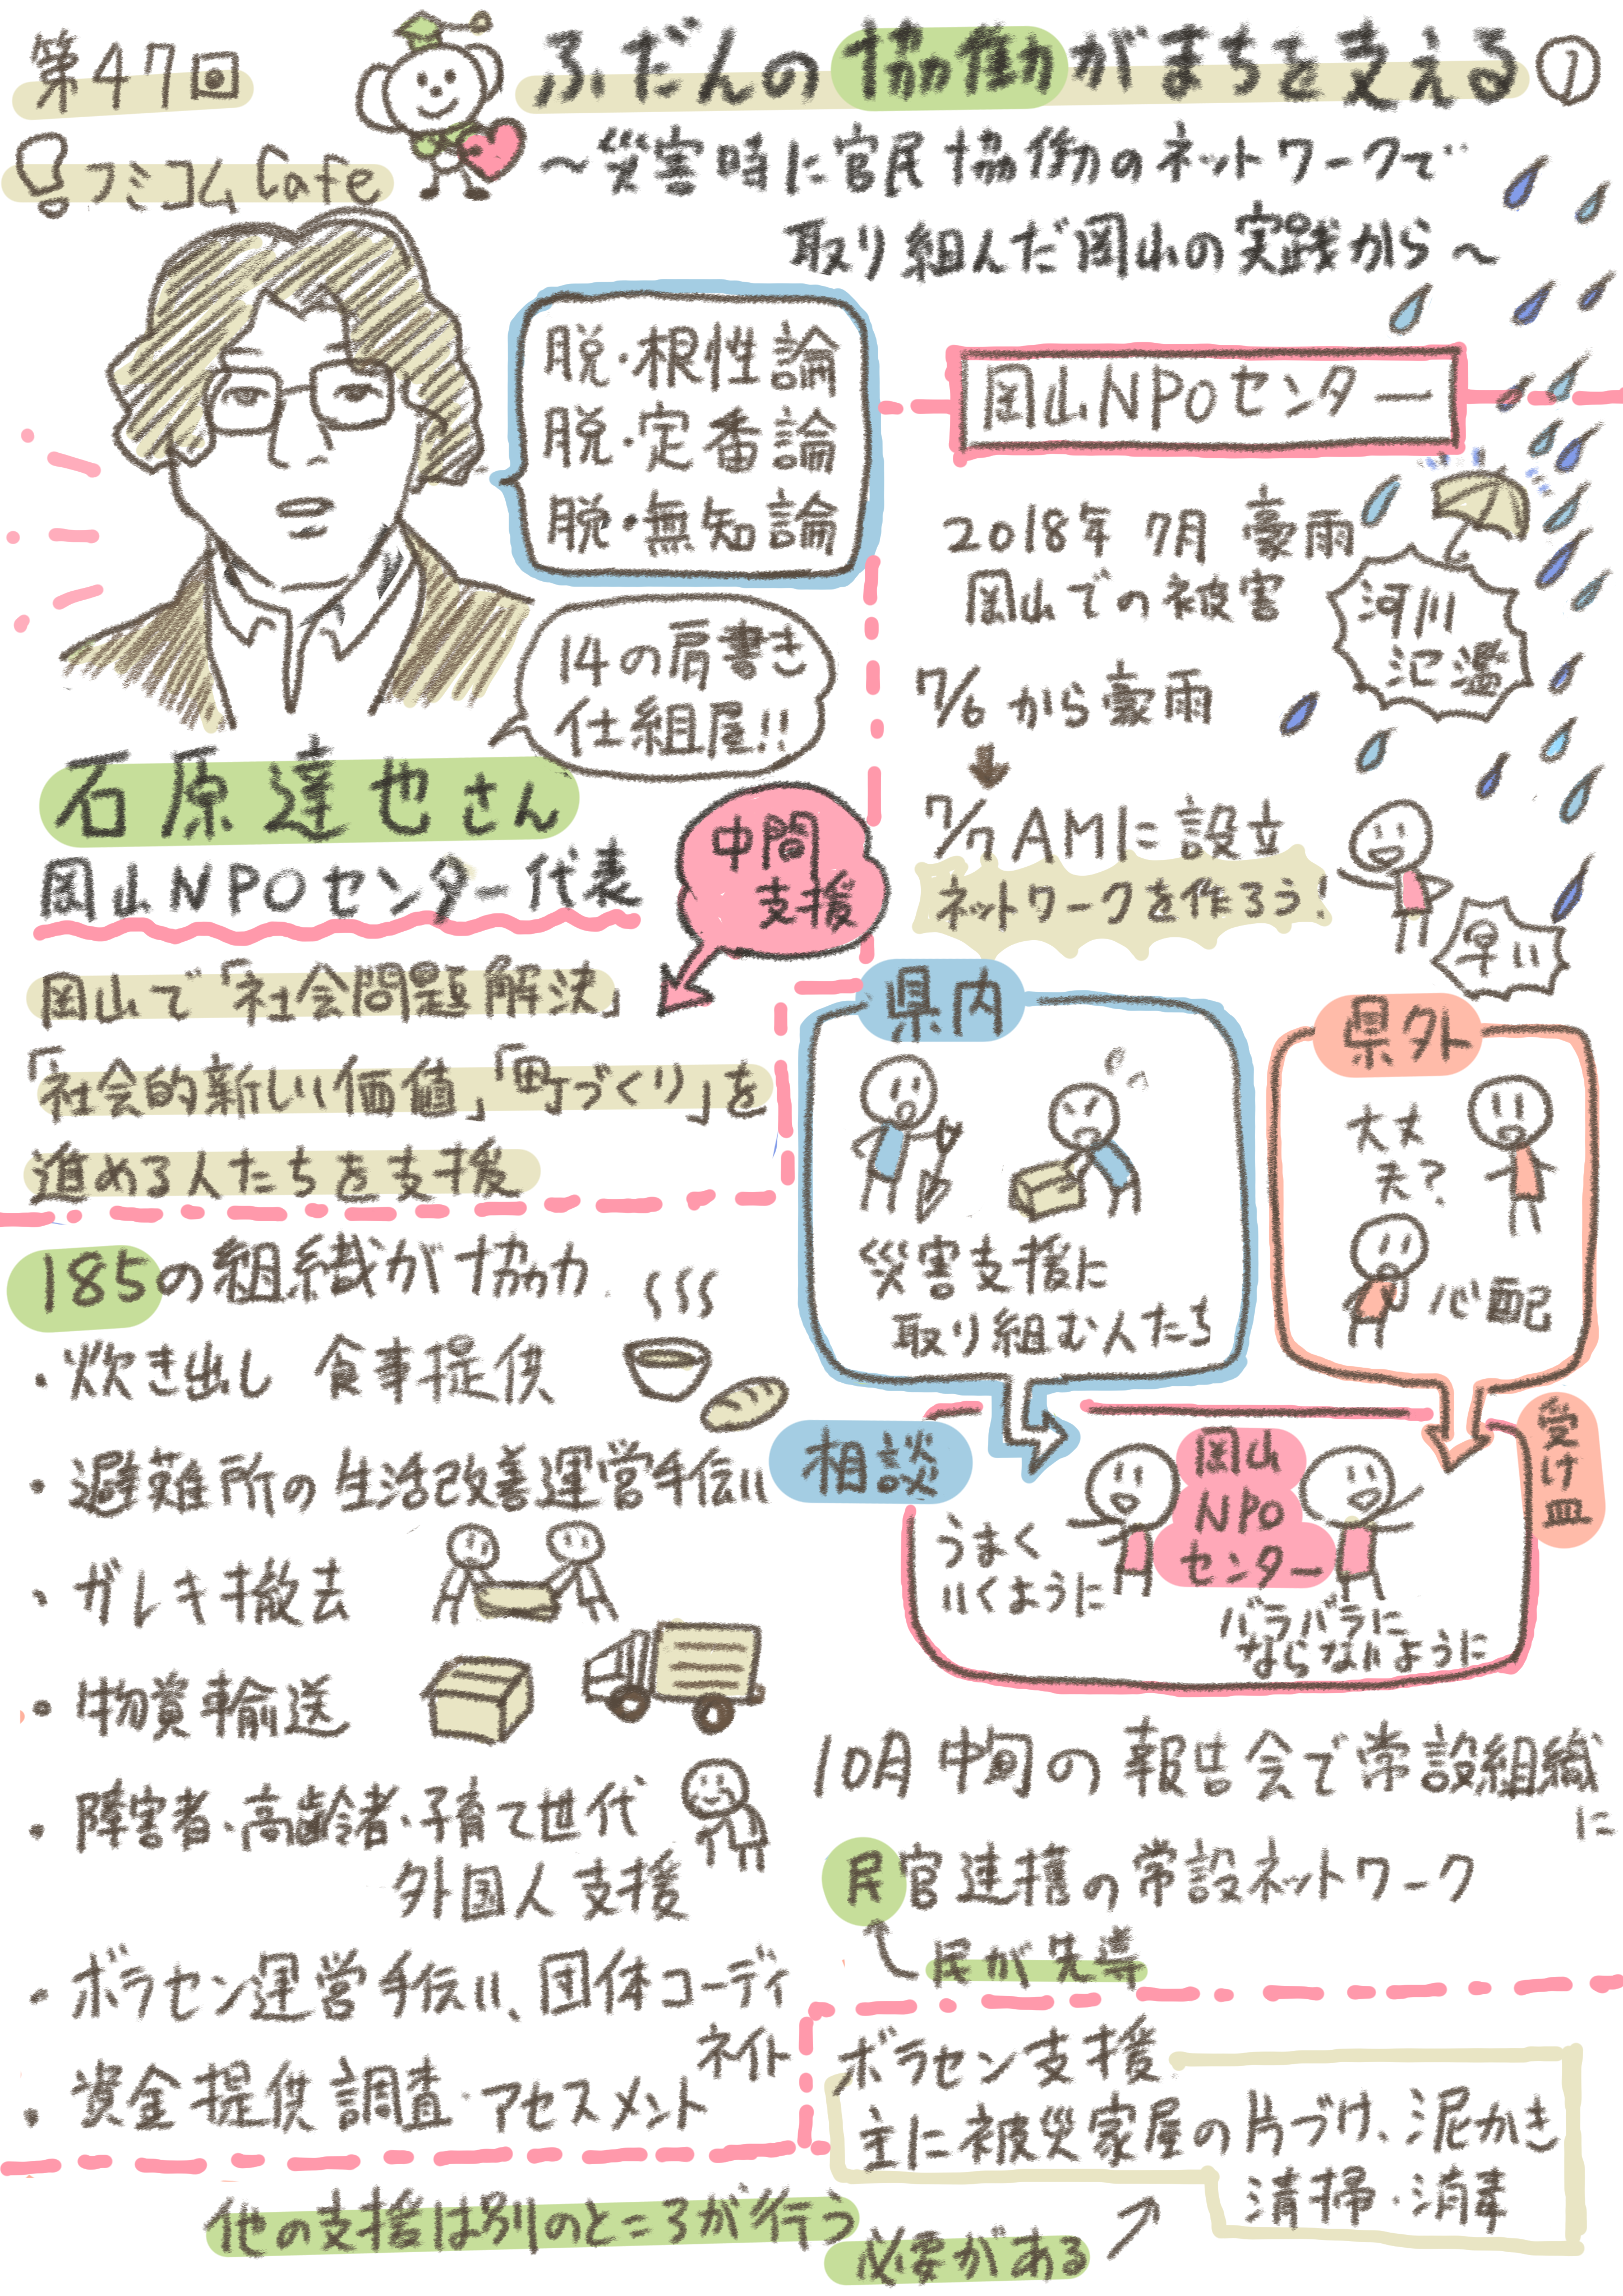 第47回
フミコムCafe
ふだんの協働がまちを支える①
~災害時に官民協働のネットワークで
取り組んだ岡山の実践から~
脱・根性論
脱・定番論
脱・無知論
14の肩書き
仕組屋!!
石原達也さん
岡山NPOセンター代表
中間
支援
岡山で「社会問題解決」
「社会的新しい価値」「町づくり」を
進める人たちを支援
185の組織が協力
・炊き出し 食事提供
・避難所の生活改善運営手伝い
・ガレキ撤去
・物資輸送
・障害者・高齢者・子育て世代
外国人支援
・ボラセン運営手伝い、団体コーディ
ネイト
・資金提供調査・アセスメント
岡山NPOセンター
2018年 7月 豪雨
岡山での被害
河川
氾濫
7/6 から豪雨
7/7 AMに設立
ネットワークを作ろう!
早い
県内
災害支援に
取り組む人たち
県外
大丈
夫?
心配
相談
受け皿
岡山
NPO
センター
うまく
いくように
バラバラに
ならないように
10月中旬の報告会で常設組織
に
民官連携の常設ネットワーク
民が先導
ボラセン支援
主に被災家屋の片づけ、泥かき
清掃・消毒
他の支援は別のところが行う
必要がある